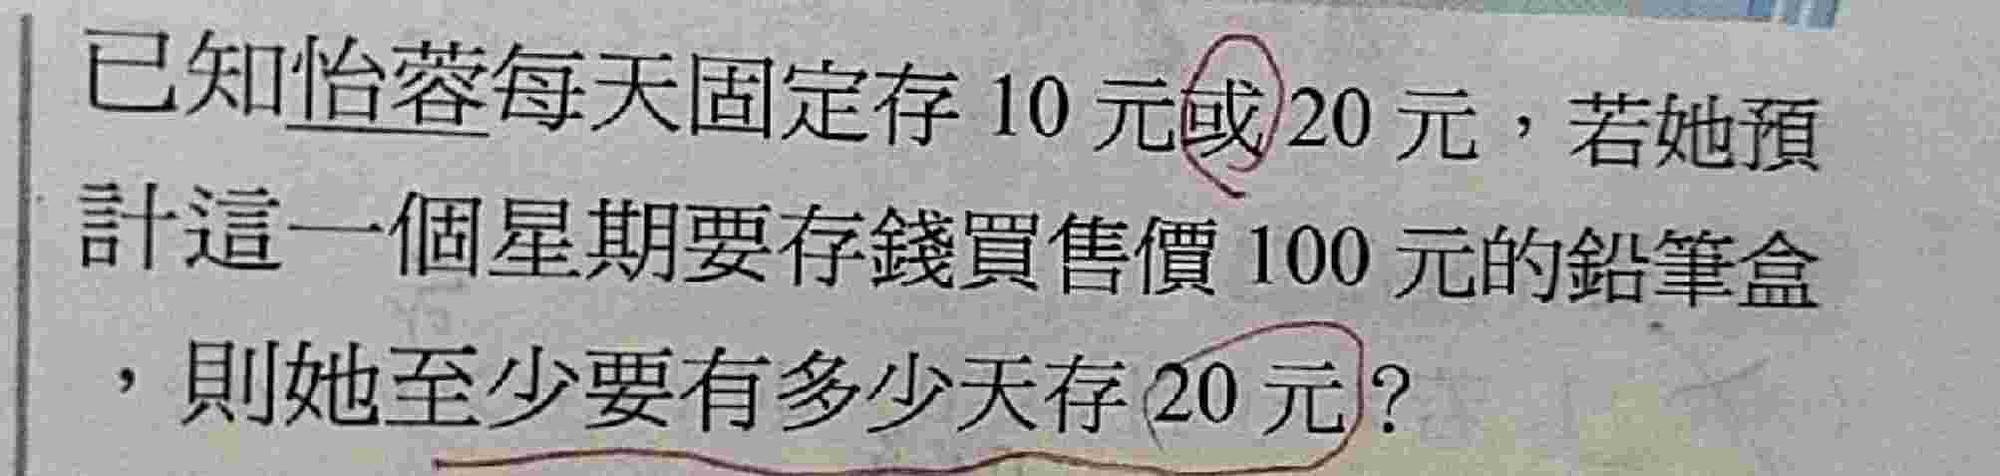 已知怡蓉每天固定存 10 元或 20 元，若她預
計這一個星期要存錢買售價 100 元的鉛筆盒
，則她至少要有多少天存 20 元？